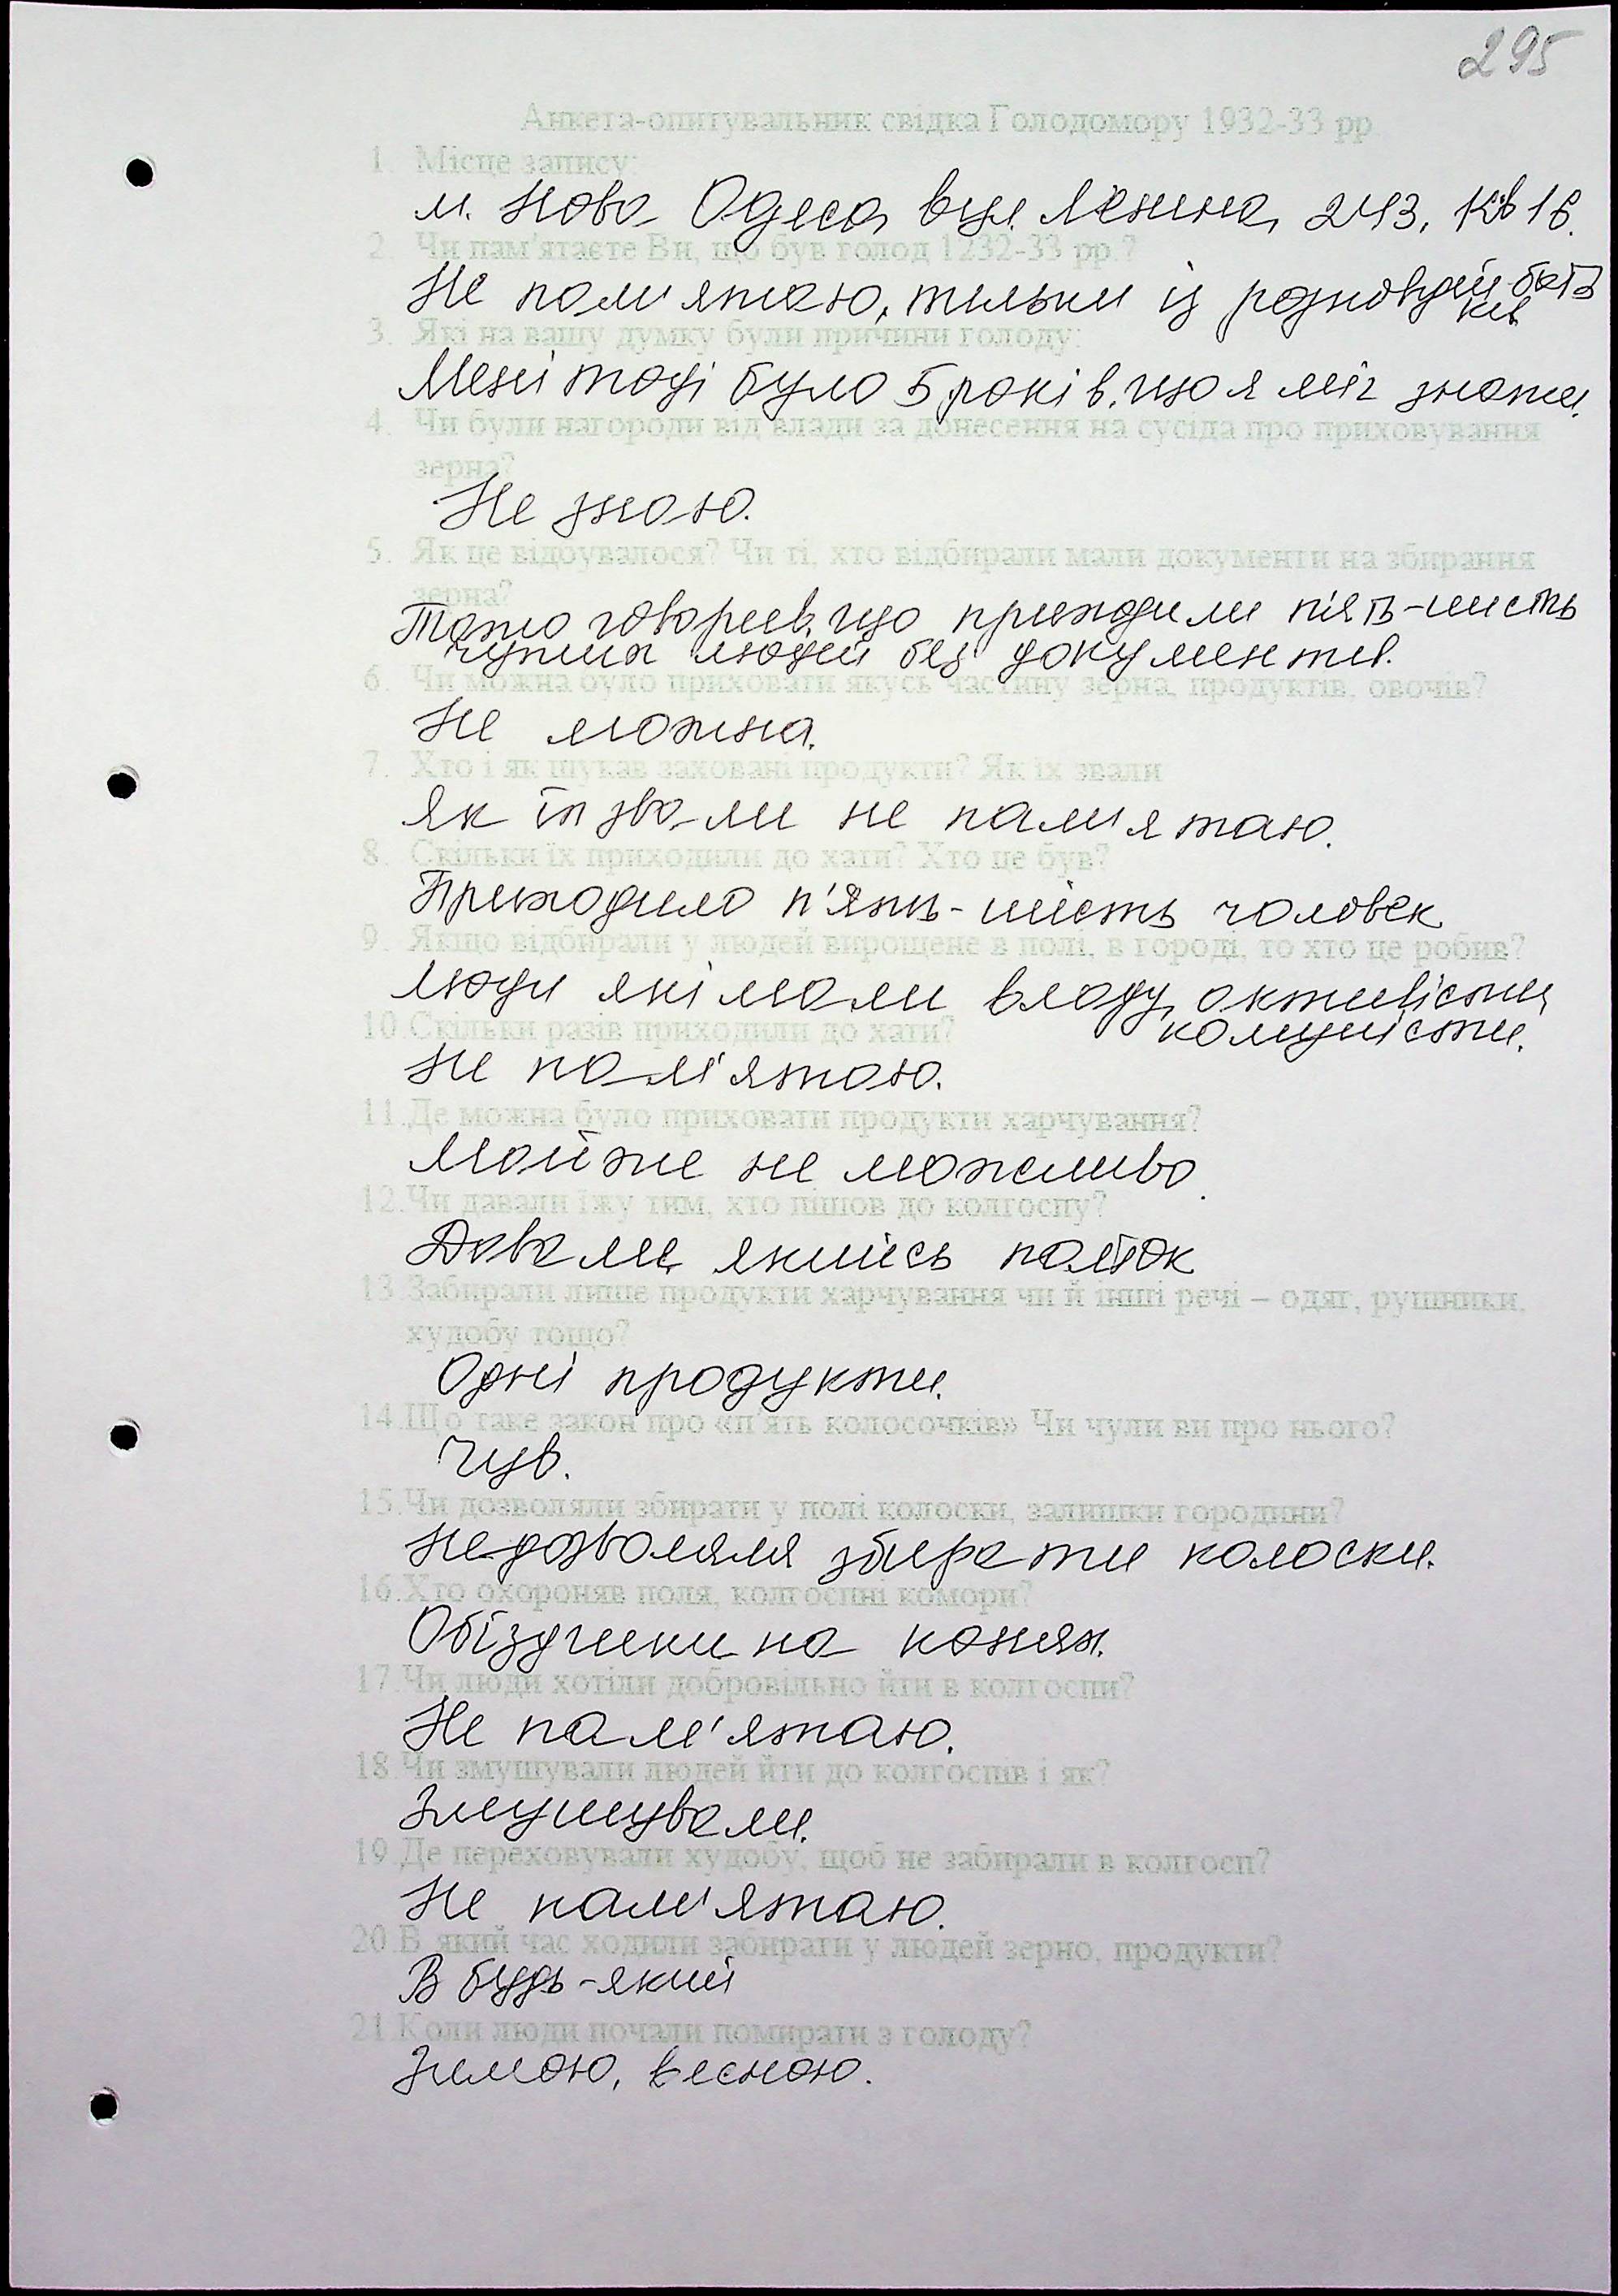 295
Анкета-опитувальник свідка Голодомору 1932-33 рр
1. Місце запису:
м. Нова Одеса, вул. Леніна, 243, кв 16.
2. Чи пам'ятаєте Ви, що був голод 1232-33 рр.?
Не пам'ятаю, тільки із розповідей батьків
3. Які на вашу думку були причини голоду:
Мені тоді було 5 років, що я міг знати.
4. Чи були нагороди від влади за донесення на сусіда про приховування
зерна?
Не знаю.
5. Як це відбувалося? Чи ті, хто відбирали мали документи на збирання
зерна?
Тато говорив, що приходили п'ять-шисть
чужих людей без документів.
6. Чи можна було приховати якусь частину зерна, продуктів, овочів?
Не можна.
7. Хто і як шукав заховані продукти? Як їх звали
Як їх звали не пам'ятаю.
8. Скільки їх приходили до хати? Хто це був?
Приходило п'ять-шість чоловек
9. Якщо відбирали у людей вирощене в полі, в городі, то хто це робив?
Люди які мали владу, активісти,
комуністи.
10.Скільки разів приходили до хати?
Не пам'ятаю.
11.Де можна було приховати продукти харчування?
Майже не можливо.
12.Чи давали їжу тим, хто пішов до колгоспу?
Давали, якийсь пайок
13.Забирали лише продукти харчування чи й інші речі – одяг, рушники,
худобу тощо?
Одні продукти.
14.Що таке закон про «п'ять колосочків» Чи чули ви про нього?
Чув.
15.Чи дозволяли збирати у полі колоски, залишки городини?
Не дозволяли збирати колоски.
16.Хто охороняв поля, колгоспні комори?
Обїздчики на конях.
17.Чи люди хотіли добровільно йти в колгоспи?
Не пам'ятаю.
18.Чи змушували людей йти до колгоспів і як?
Змушували.
19.Де переховували худобу, щоб не забирали в колгосп?
Не пам'ятаю.
20.В який час ходили забирати у людей зерно, продукти?
В будь-який
21.Коли люди почали помирати з голоду?
Зимою, весною.